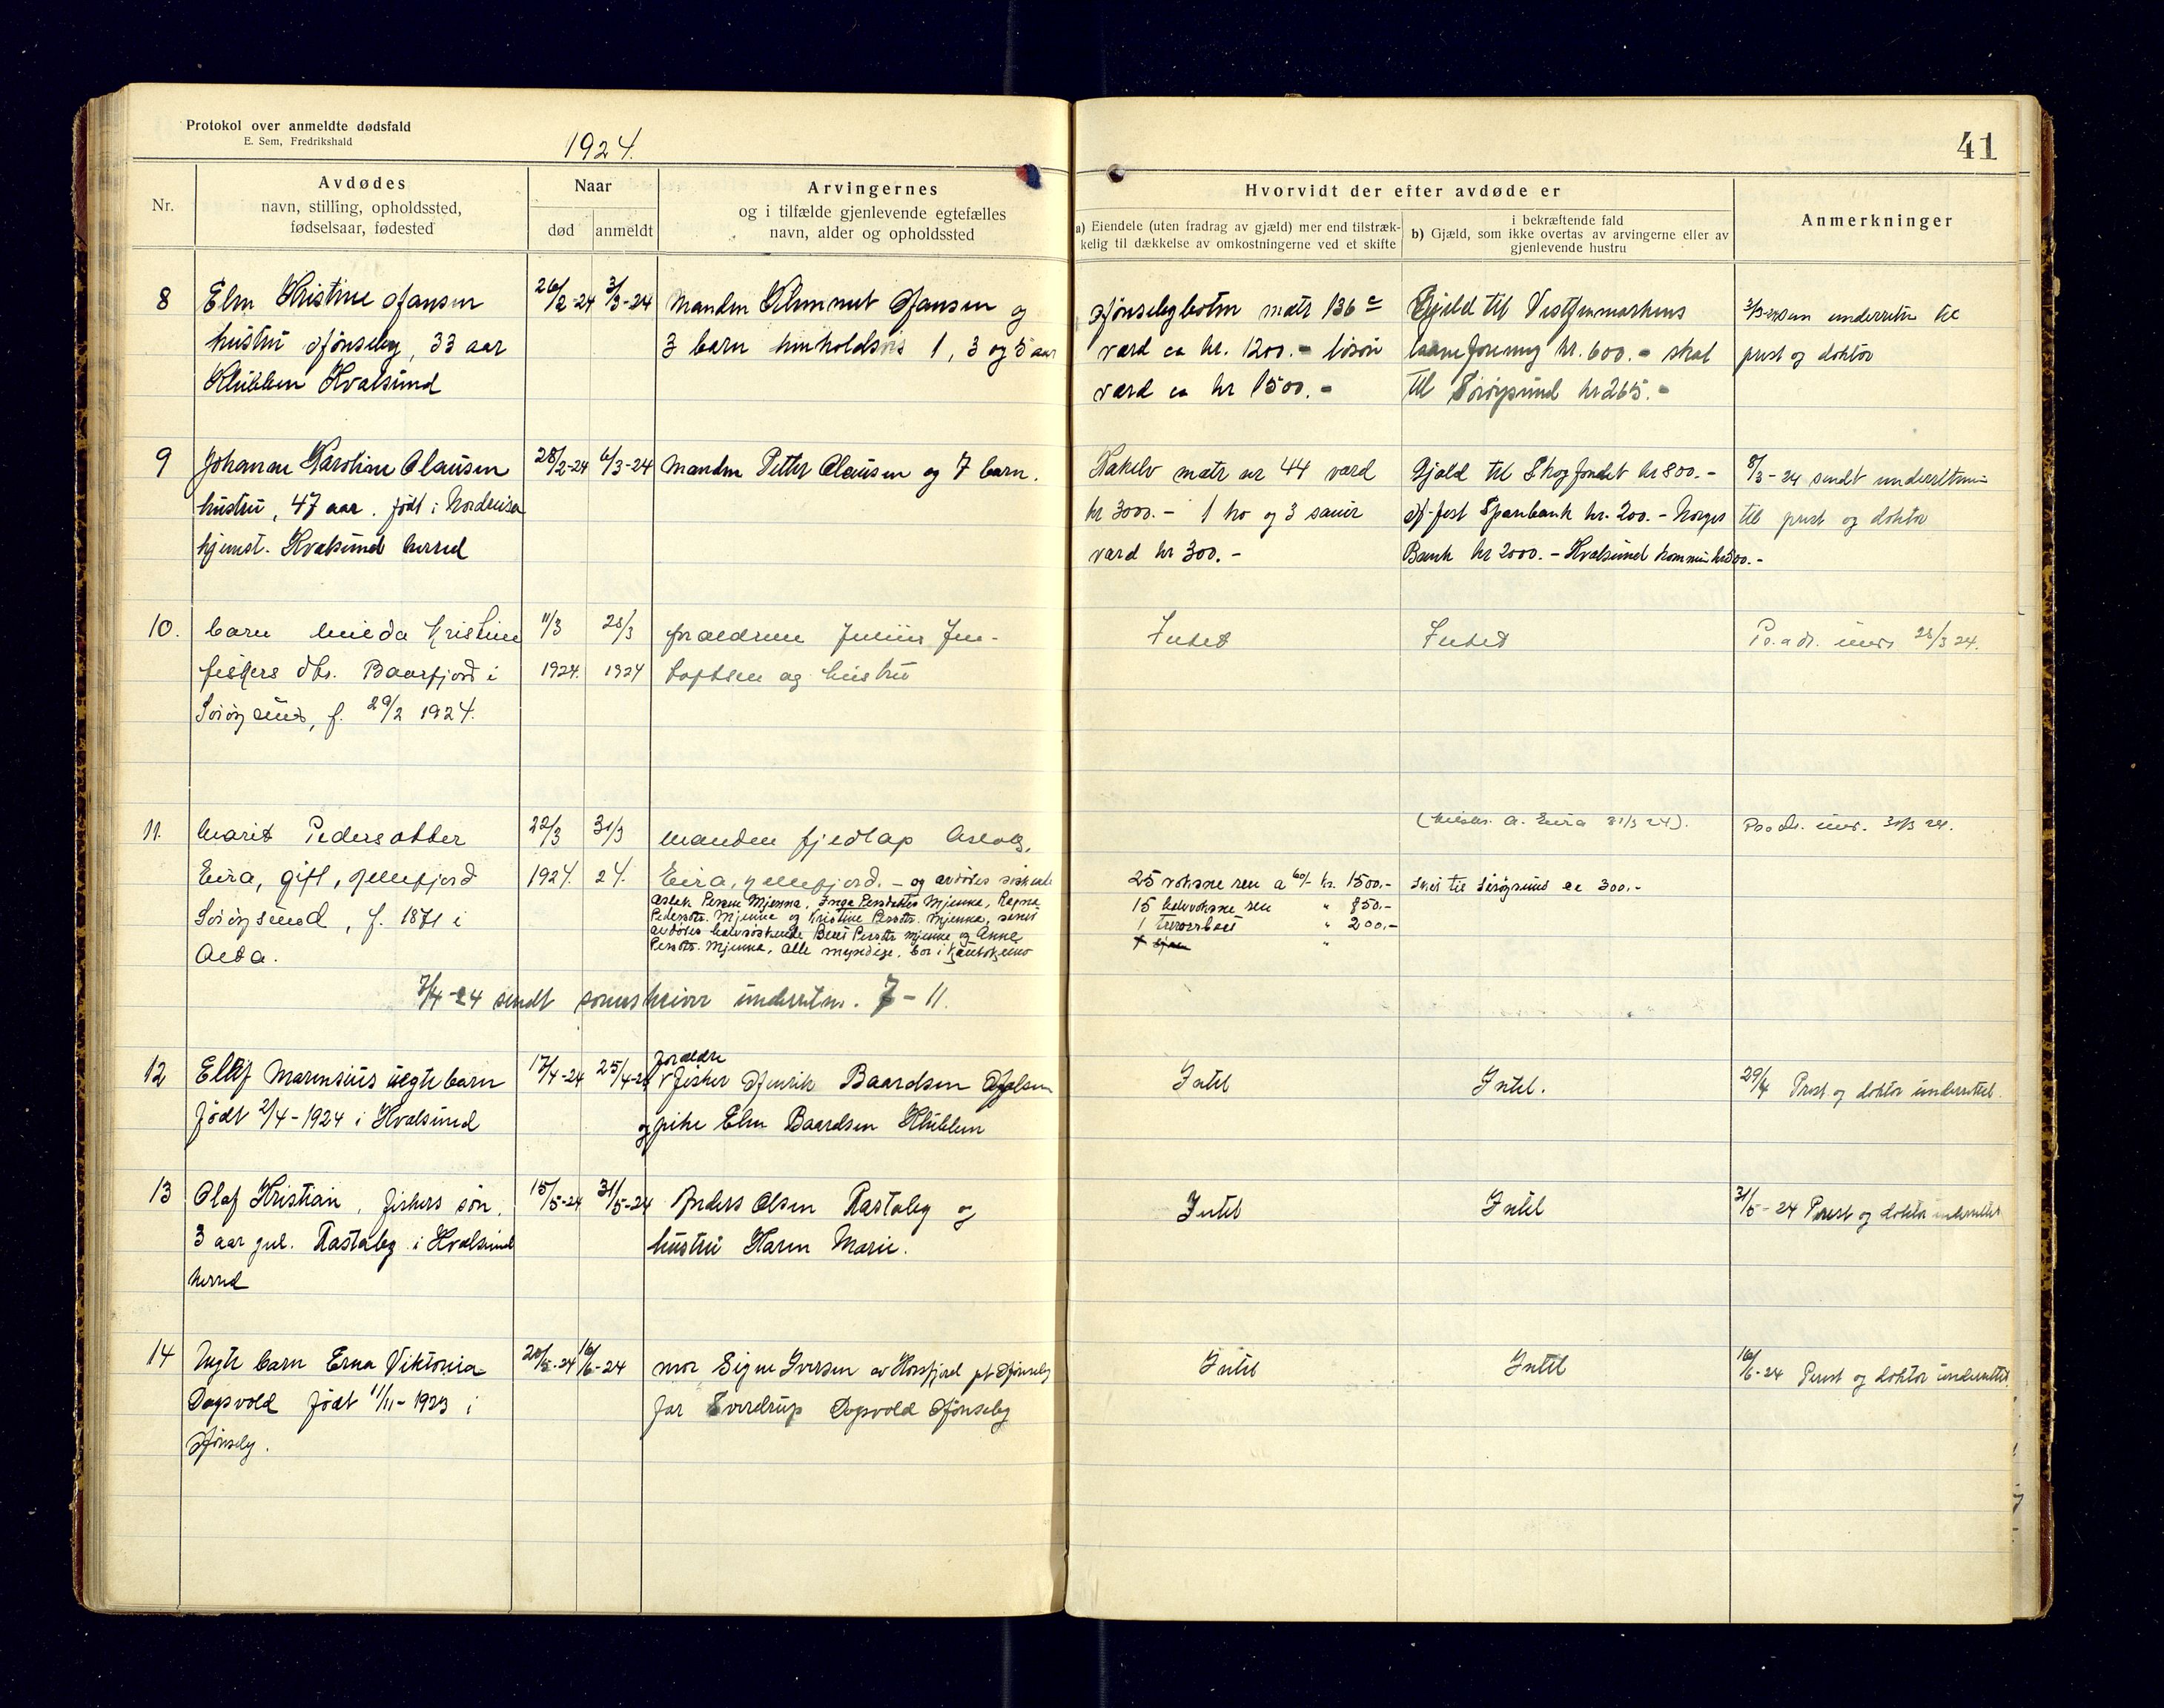 Protokol over anmeldte dødsfald
E. Sem, Fredrikshald
1924.
41
Nr.
Avdødes
navn, stilling, opholdssted,
fødselsaar, fødested
Naar
død
anmeldt
Arvingernes
og i tilfælde gjenlevende egtefælles
navn, alder og opholdssted
Hvorvidt der efter avdøde er
a) Eiendele (uten fradrag av gjæld) mer end tilstræk-
kelig til dækkelse av omkostningerne ved et skifte
i bekræftende fald
b) Gjæld, som ikke overtas av arvingerne eller av
gjenlevende hustru
Anmerkninger
8
Elen Kristine Hansen
hustru Hønseby, 33 aar
Klubben Kvalsund
26/2-24
3/3-24
Manden Klemmet Hansen og
3 barn henholdsvis 1, 3 og 5 aar
Hønsebybotn matr 136 c
værd ca kr. 1200.- løsøre
værd ca kr 1500.-
Gjeld til Vestfinmarkens
laaneforening kr. 600.- skat
til Sørøysund kr 265.-
underretn til
prest og doktor
9
Johanne Karoline Olaussen
hustru, 47 aar. født i Nordreisa
hjemst. Kvalsund herred
28/2-24
6/3-24
Manden Petter Olaussen og 7 barn.
Kakelv matr nr 44 værd
kr 3000.- 1 ko og 3 sauer
værd kr 300.-
Gjæld til Skogfondet kr 800.-
H.fest Sparebank kr. 200.- Norges
Bank kr 2000.- Kvalsund kommune kr 500.-
8/3-24 sendt underretning
til prest og doktor
10.
barn Meida Kristine
fiskers dtr. Baarfjord i
Sørøysund, f. 29/2 1924.
11/3
1924.
28/3
1924
foraeldrene Julius Jen-
toftsen og hustru
Intet
Intet
Pr. a dr. und. 28/3 24.
11.
Marit Pedersdatter
Eira, gift, Jøllefjord
Sørøysund, f. 1871 i
Alta.
22/3
1924.
31/3
24.
Manden fjedlap Aslak
Eira, Jøllefjord. - og avdødes søskende
Aslak Persen Mienna, Inga Persdatter Mienna, Ragna
Pedersdtr. Mienna og Kristine Persdtr. Mienna, samt
avdødes halvsøskende Berit Persdtr Mienna og Anne
Persdtr. Mienna, alle myndige, bor i Kautokeino
25 voksne ren a 60/- kr. 1500.-
15 halvvoksne ren " 850.-
1 " 200.-
(Medd. A. Eira 31/3 24).
Skat til Sørøysund ca 300.-
Pr. a dr. und. 31/3 24.
7/4-24 sendt sorenskriver underretn. 7 - 11.
12
Ellif Marensius uegte barn
født 2/4-1924 i Kvalsund
17/4-24
25/4-24
Foraeldre
Fisker Henrik Baardsen
og pike Elen Baardsen Klubben
Intet
Intet.
29/4 Prest og doktor underrettet.
13
Olaf Kristian, fiskers søn,
3 aar gml. Rastaby i Kvalsund
herred
15/5-24
31/5-24
Anders Olsen Rastaby og
hustru Karen Marie.
Intet
Intet
31/5-24 Prest og doktor underrettet
14
Uegte barn Erna Viktoria
Dagsvold født 11/11-1923 i
Hønseby.
20/5-24
16/6-24
mor Signe Iversen av Korsfjord pt Hønseby
far Sverdrup Dagsvold Hønseby
Intet
Intet
16/6-24 Prest og doktor underrettet.